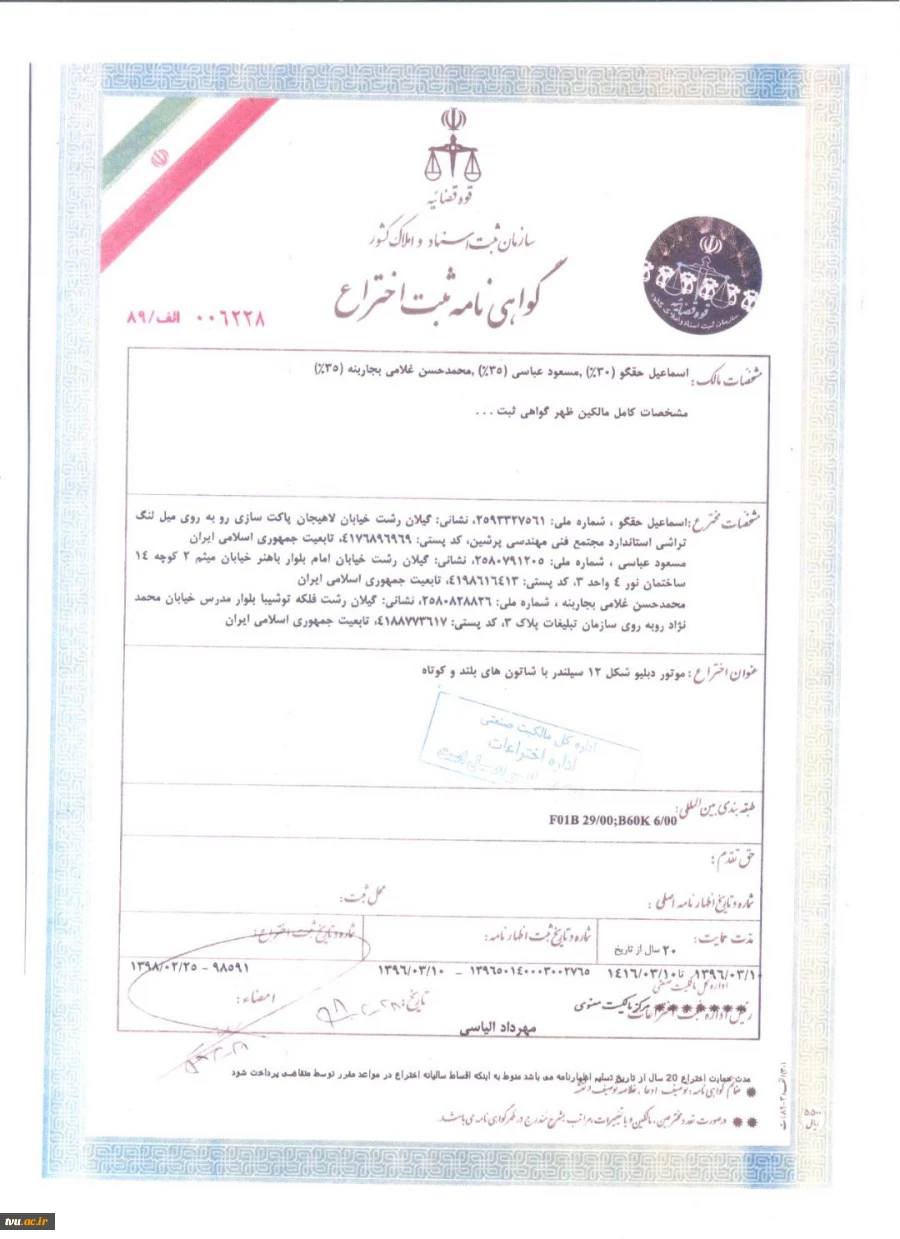 قوه قضائیه
سازمان ثبت اسناد و املاک کشور
گواهی نامه ثبت اختراع
قوه قضائیه
سازمان ثبت اسناد و املاک کشور
۰۰۶۲۲۸ الف/۸۹
مشخصات مالک: اسماعیل حقگو (۳۰٪) ,مسعود عباسی (۳۵٪) ,محمدحسن غلامی بجاربنه (۳۵٪)
مشخصات کامل مالکین ظهر گواهی ثبت ...
مشخصات مخترع: اسماعیل حقگو ، شماره ملی: ۲۵۹۳۳۲۷۵۶۱، نشانی: گیلان رشت خیابان لاهیجان پاکت سازی رو به روی میل لنگ
تراشی استاندارد مجتمع فنی مهندسی پرشین، کد پستی: ۴۱۷۶۸۹۶۹۶۹، تابعیت جمهوری اسلامی ایران
مسعود عباسی ، شماره ملی: ۲۵۸۰۷۹۱۲۰۵، نشانی: گیلان رشت خیابان امام بلوار باهنر خیابان میثم ۲ کوچه ۱۴
ساختمان نور ۴ واحد ۳، کد پستی: ۴۱۹۸۶۱۶۴۱۳، تابعیت جمهوری اسلامی ایران
محمدحسن غلامی بجاربنه ، شماره ملی: ۲۵۸۰۸۲۸۸۲۶، نشانی: گیلان رشت فلکه توشیبا بلوار مدرس خیابان محمد
نژاد روبه روی سازمان تبلیغات پلاک ۳، کد پستی: ۴۱۸۸۷۷۳۶۱۷، تابعیت جمهوری اسلامی ایران
عنوان اختراع: موتور دبلیو شکل ۱۲ سیلندر با شاتون های بلند و کوتاه
اداره کل مالکیت صنعتی
اداره اختراعات
طبقه بندی بین المللی: F01B 29/00;B60K 6/00
حق تقدم:
شماره و تاریخ اظهارنامه اصلی: محل ثبت:
مدت حمایت: ۲۰ سال از تاریخ شماره و تاریخ ثبت اظهارنامه: شماره و تاریخ ثبت اختراع:
۱۳۹۶/۰۳/۱۰ تا ۱۴۱۶/۰۳/۱۰ ۱۳۹۶۵۰۱۴۰۰۰۳۰۰۲۷۶۵ - ۱۳۹۶/۰۳/۱۰ ۹۸۵۹۱ - ۱۳۹۸/۰۲/۲۵
اداره کل مالکیت صنعتی
رئیس اداره ثبت اختراعات مرکز مالکیت معنوی تاریخ: امضاء:
مهرداد الیاسی
مدت حمایت اختراع 20 سال از تاریخ تسلیم اظهارنامه می باشد منوط به اینکه اقساط سالیانه اختراع در مواعد مقرر توسط متقاضی پرداخت شود
ضمائم گواهی نامه: توصیف، ادعا، خلاصه توصیف و نقشه
در صورت تعدد مخترعین، مالکین و یا تغییرات، مراتب بشرح مندرج در ظهر گواهی نامه می باشد
۵۵۰ ریال
tvu.ac.ir